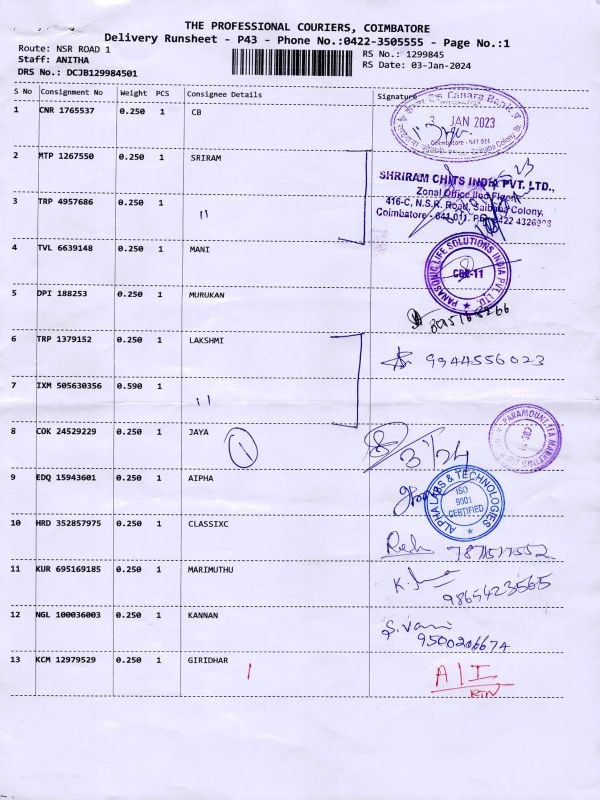 THE PROFESSIONAL COURIERS, COIMBATORE
Delivery Runsheet - P43 - Phone No.:0422-3505555 - Page No.:1
Route: NSR ROAD 1
Staff: ANITHA
DRS No.: DCJB129984501
RS No.: 1299845
RS Date: 03-Jan-2024
S No Consignment No Weight PCS Consignee Details Signature
1 CNR 1765537 0.250 1 CB
Canara Bank
JAN 2023
Coimbatore - 641 011
Saibaba Colony
2 MTP 1267550 0.250 1 SRIRAM
SHRIRAM CHITS INDIA PVT. LTD.,
Zonal Office IInd Floor
416-C, N.S.R. Road, Saibaba Colony,
Coimbatore - 641 011.
3 TRP 4957686 0.250 1 11
4 TVL 6639148 0.250 1 MANI
PANASONIC LIFE SOLUTIONS INDIA PVT. LTD.
CBE-11
5 DPI 188253 0.250 1 MURUKAN
6 TRP 1379152 0.250 1 LAKSHMI
9944556023
7 IXM 505630356 0.590 1 11
8 COK 24529229 0.250 1 JAYA 1
3/1/24
9 EDQ 15943601 0.250 1 AIPHA
ALPHA LABS & TECHNOLOGIES
ISO
9001
CERTIFIED
10 HRD 352857975 0.250 1 CLASSIXC
11 KUR 695169185 0.250 1 MARIMUTHU
9865423565
12 NGL 100036003 0.250 1 KANNAN
S. Vani
9500206674
13 KCM 12979529 0.250 1 GIRIDHAR 1
A/I
RTN